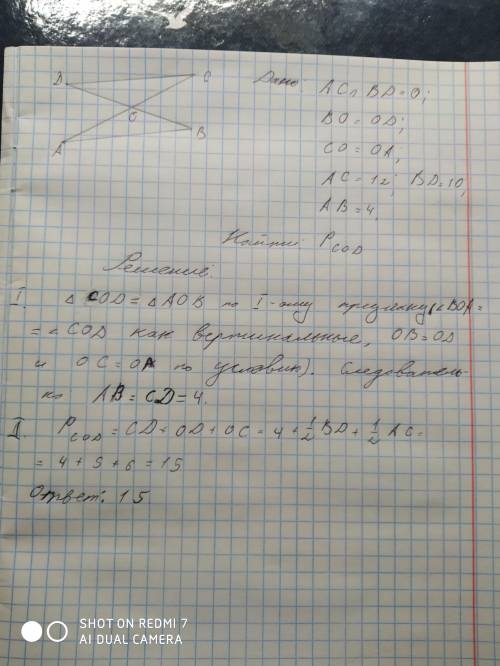 D
C
O
B
A
Дано: AC ∩ BD = O;
BO = OD;
CO = OA;
AC = 12; BD = 10;
AB = 4.
Найти: P_COD
Решение:
I. △ COD = △ AOB по I-ому признаку (∠BOA =
= ∠COD как вертикальные, OB = OD
и OC = OA по условию). Следователь-
но AB = CD = 4.
II. P_COD = CD + OD + OC = 4 + 1/2 BD + 1/2 AC =
= 4 + 5 + 6 = 15
Ответ: 15
SHOT ON REDMI 7
AI DUAL CAMERA